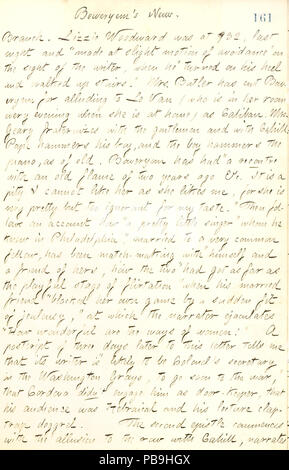 Boweryem's News.
161
Branch. Lizzie Woodward was at 132, last
night and "made a slight motion of avoidance on
the sight of the writer when he turned on his heel
and walked up stairs! Mrs. Butler has cut Bow-
eryem for alluding to Le Van, who is in her room
every evening when she is at home, as Caliban. Mrs.
Geary fraternizes with the gentlemen and with Cahill.
Page hammers his boy, and the boy hammers the
piano, as of old. Boweryem has had "a recontre
with an old flame of two years ago &c. It is a
pity I cannot like her as she likes me, for she is
very pretty but too ignorant for my taste." Then I'd
have an account how "a pretty little singer whom he
knew in Philadelphia," married to a very common
fellow, has been match-making with himself and
a friend of hers, how the two had got as far as
the playful stage of flirtation when his married
friend "blocked her own game by a sudden fit
of jealousy," at which the narrator ejaculates
"How wonderful are the ways of women!" A
postscript, three days later to this letter tells me
that its writer is likely to be Colonel's secretary
in the Washington Grays, to go soon to the war,
that Cordova didn't engage him as door-keeper, that
his audience was Hebraical and his lecture clap-
trap doggrel. The second epistle commences
with the allusion to the row with Cahill, narrates